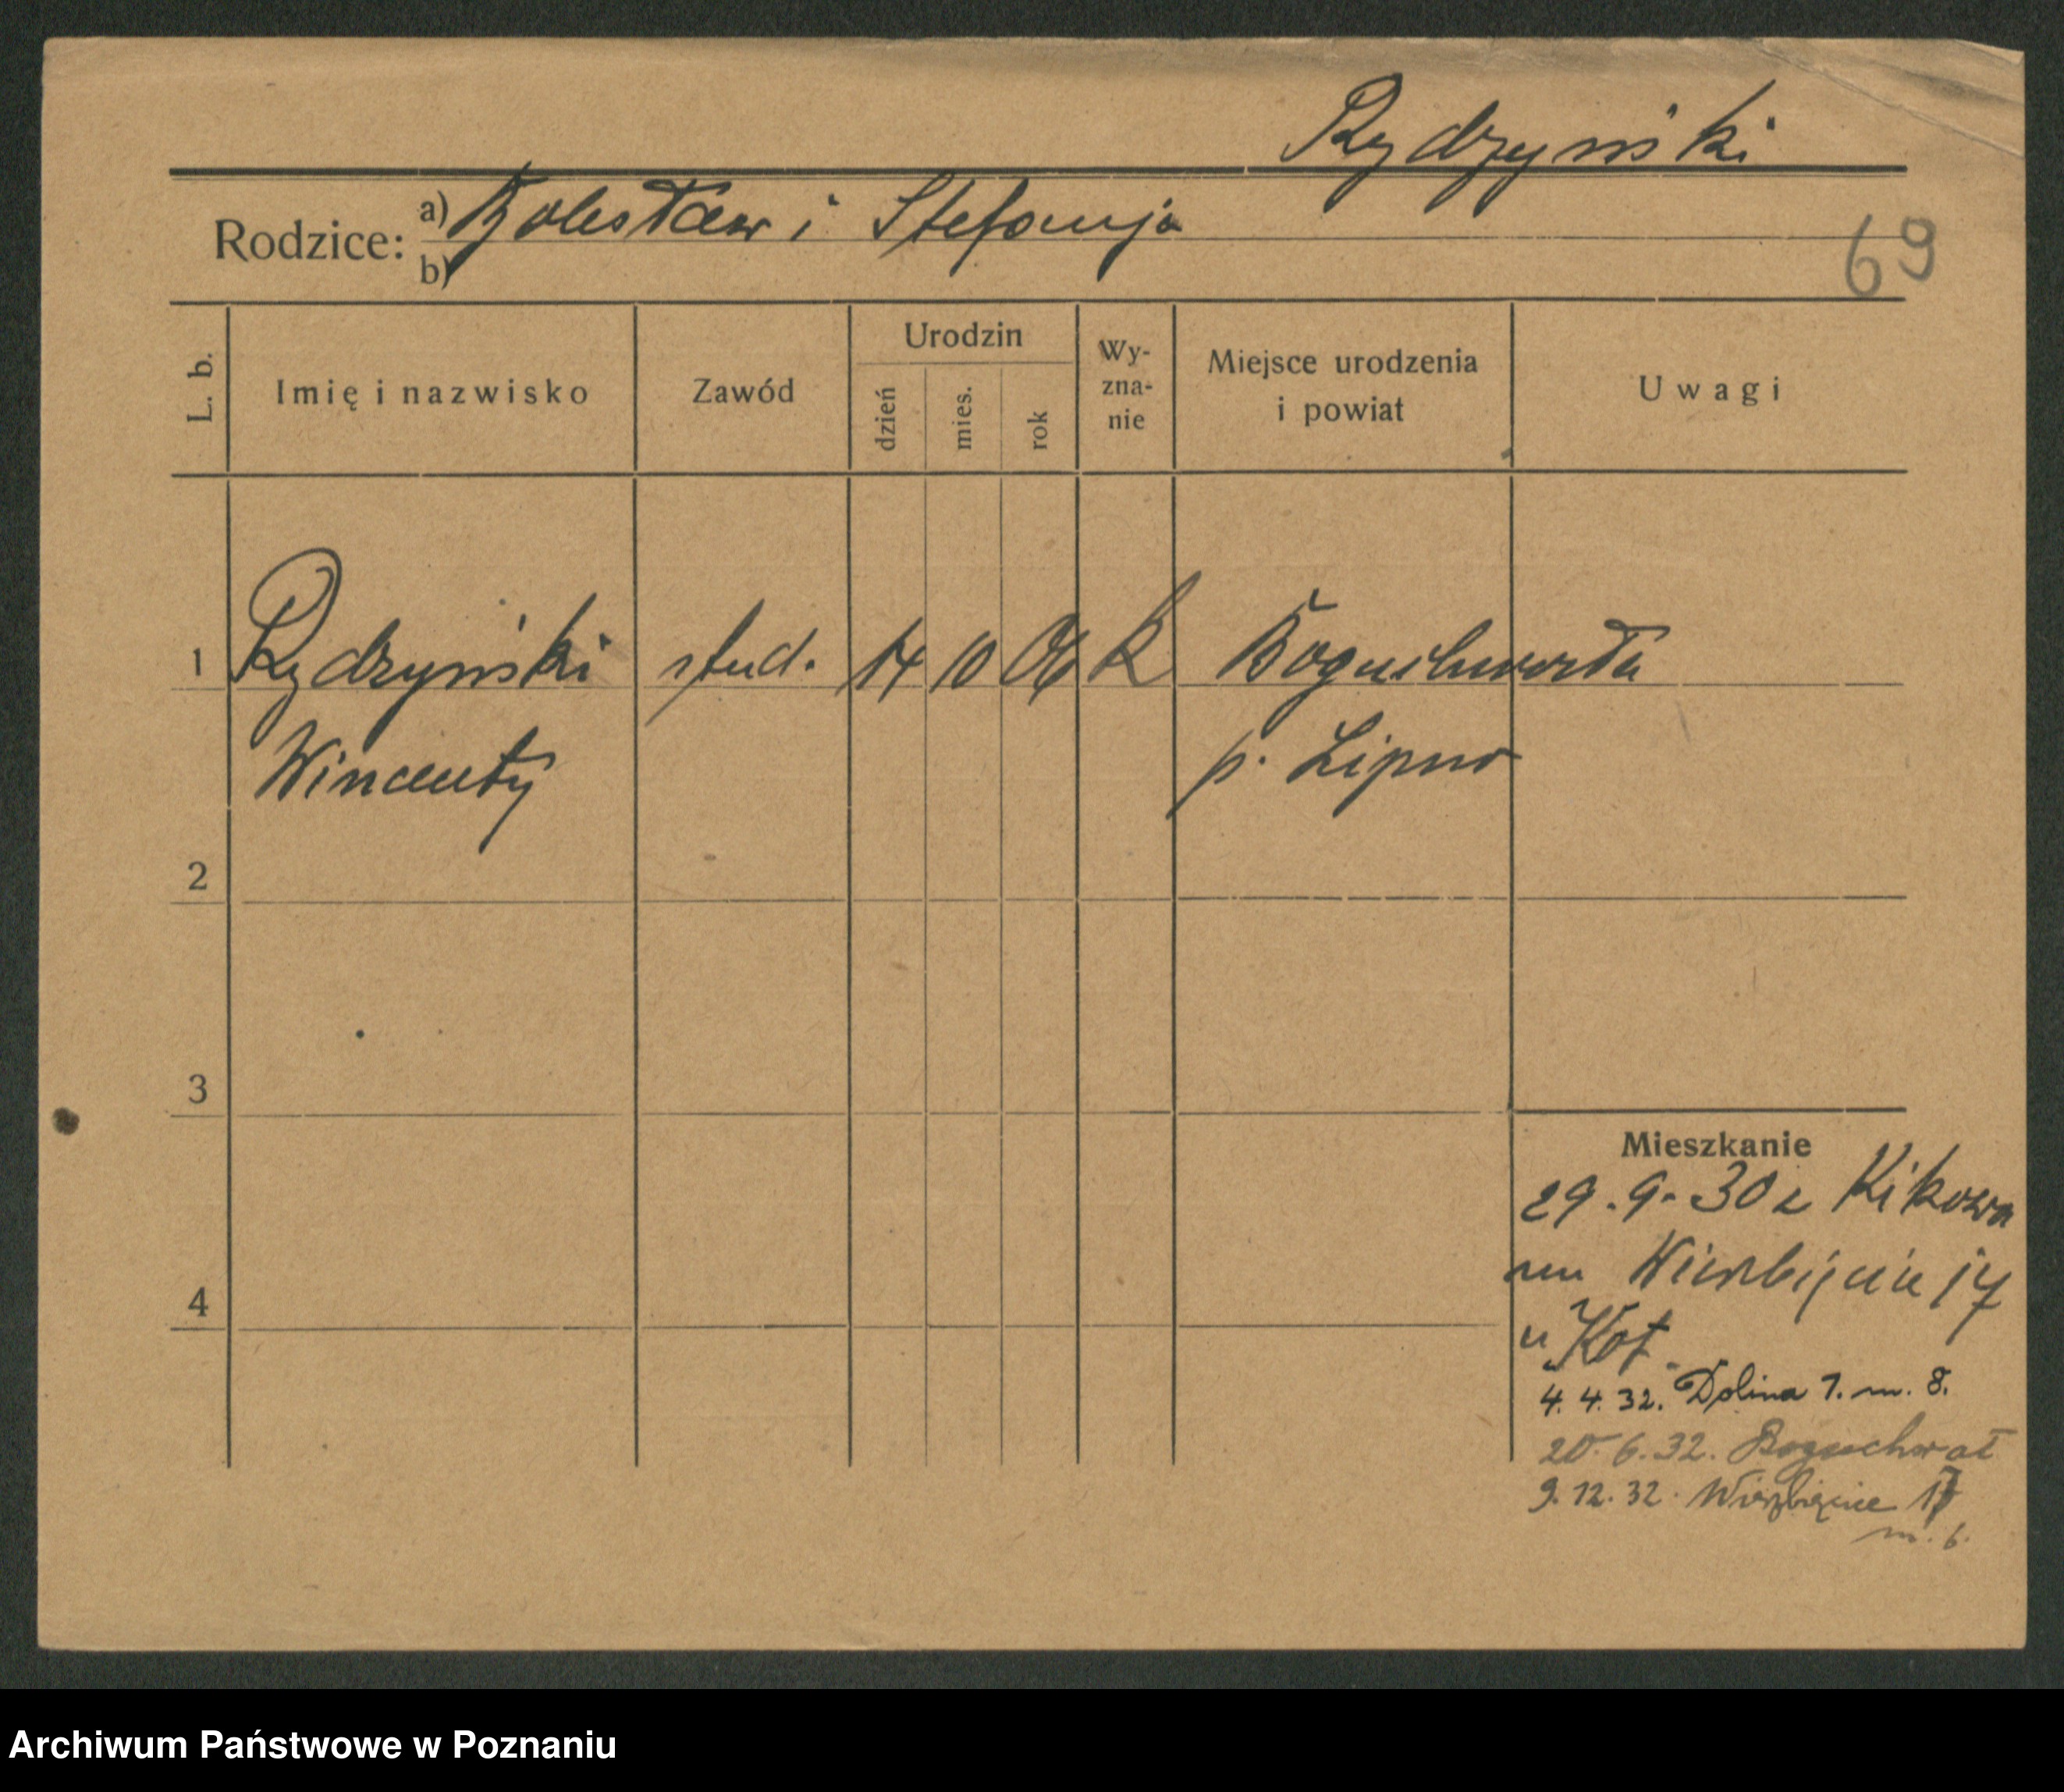 Rydzyński
Rodzice: a) Bolesław i Stefanja
b)
69
L. b.
Imię i nazwisko
Zawód
Urodzin
dzień
mies.
rok
Wy-
zna-
nie
Miejsce urodzenia
i powiat
Uwagi
1 Rydzyński stud. 14 10 06 K Boguchwała
Wincenty p. Lipno
2
3
4
Mieszkanie
29.9.30 z Kikowa
na Wierzbięcice 17
u Kot.
4.4.32. Dolina 7. m. 8.
20.6.32. Boguchwał
9.12.32. Wierzbięcice 17
m. 6.
Archiwum Państwowe w Poznaniu